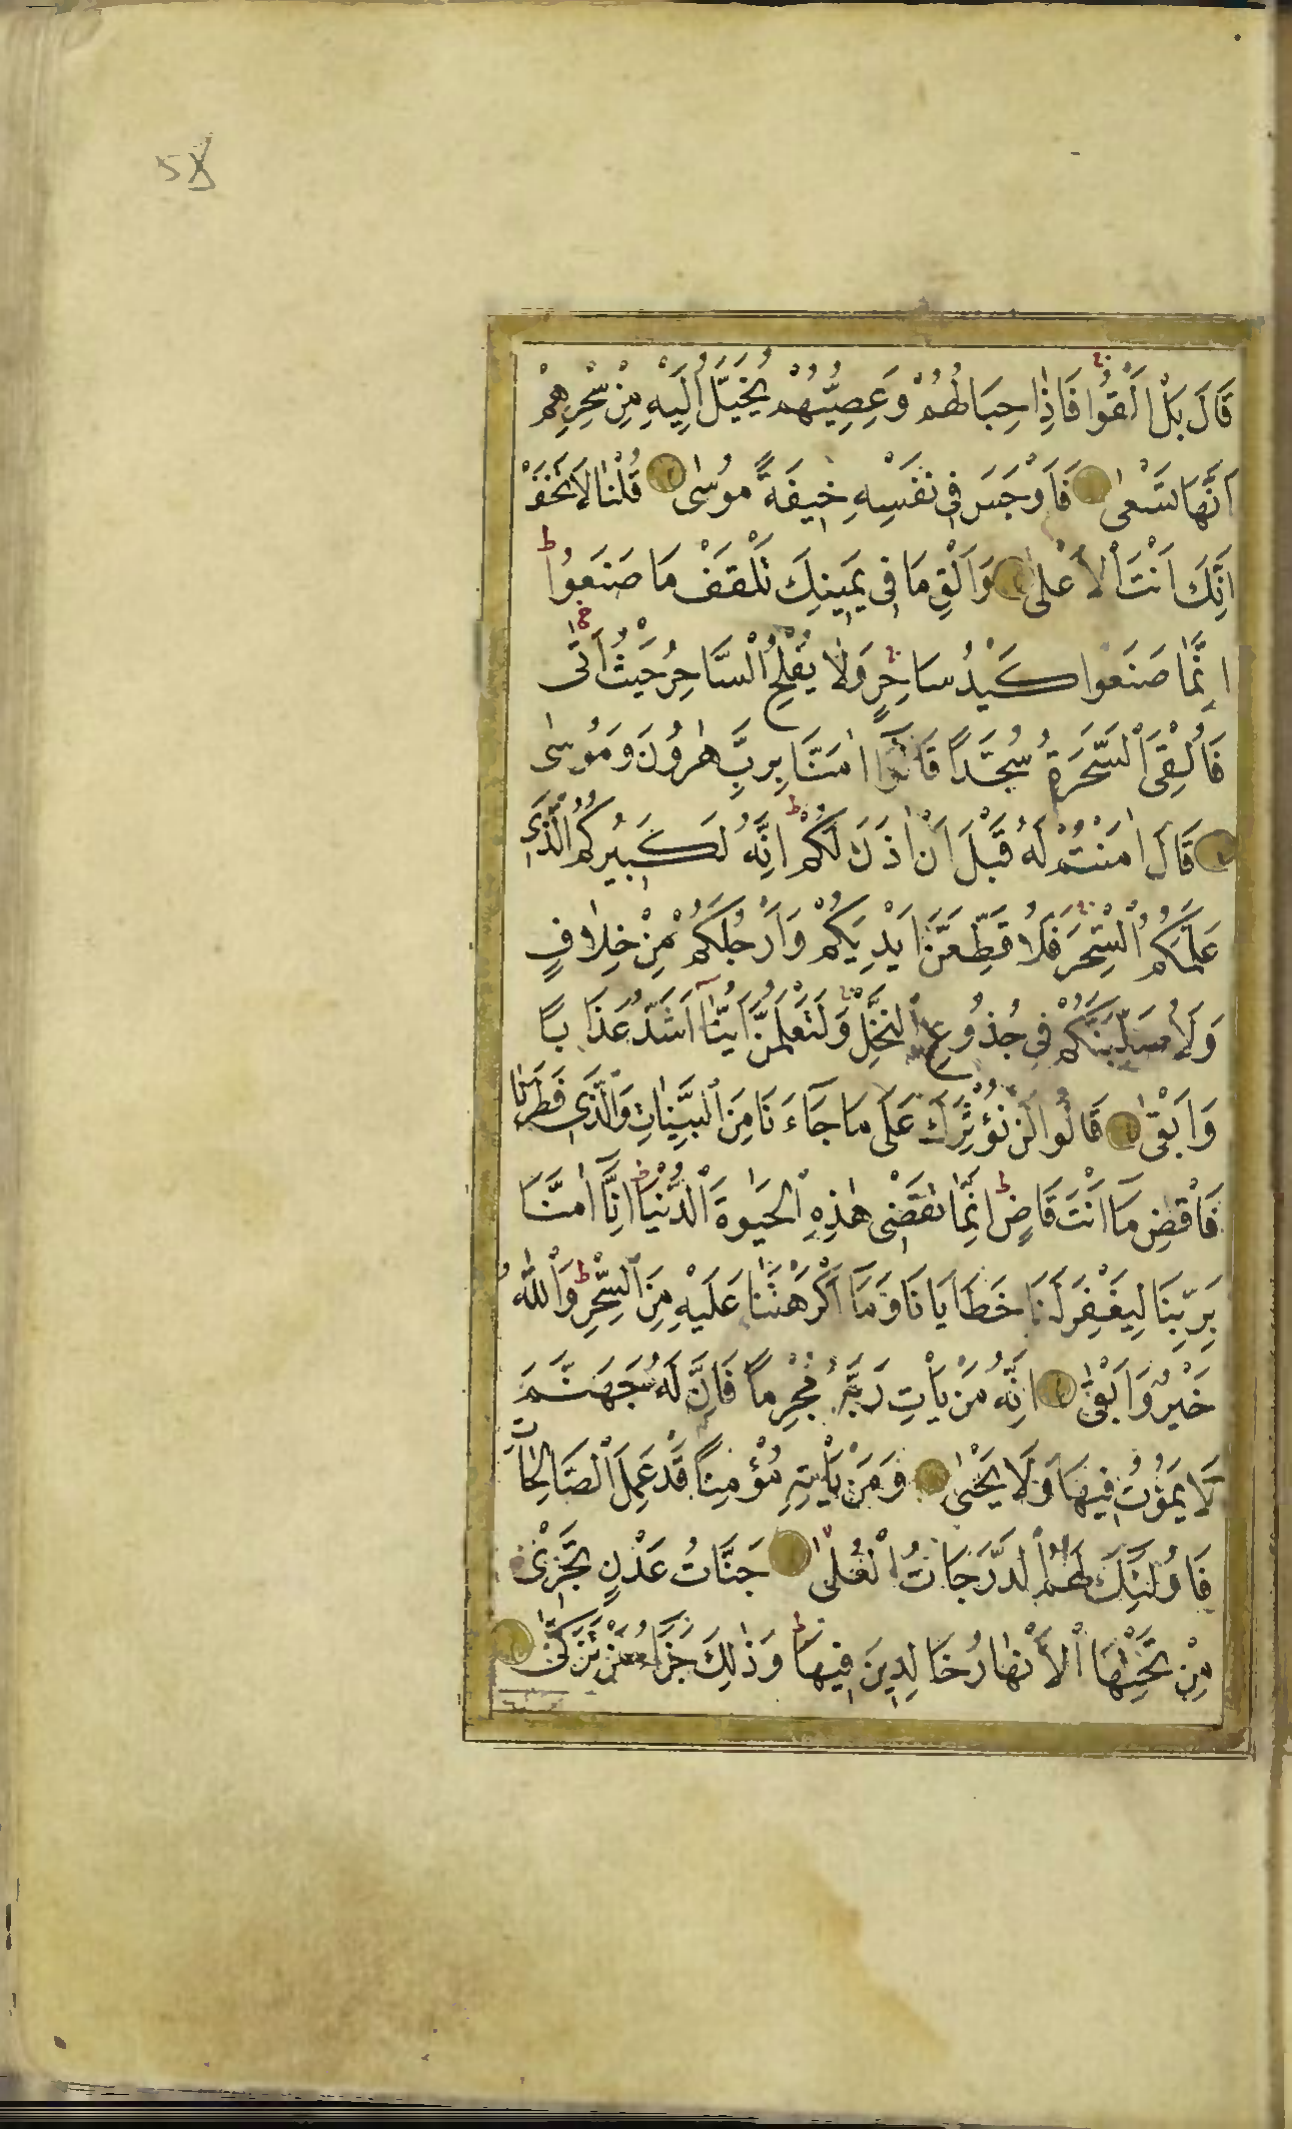 58
قَالَ بَلْ اَلْقُوا فَاِذَا حِبَالُهُمْ وَعِصِيُّهُمْ يُخَيَّلُ اِلَيْهِ مِنْ سِحْرِهِمْ
اَنَّهَا تَسْعٰى فَاَوْجَسَ فِى نَفْسِهِ خِيفَةً مُوسٰى قُلْنَا لَا تَخَفْ
اِنَّكَ اَنْتَ الْاَعْلٰى وَاَلْقِ مَا فِى يَمِينِكَ تَلْقَفْ مَا صَنَعُوا ط
اِنَّمَا صَنَعُوا كَيْدُ سَاحِرٍ وَلَا يُفْلِحُ السَّاحِرُ حَيْثُ اَتٰى
فَاُلْقِىَ السَّحَرَةُ سُجَّدًا قَالُوا اٰمَنَّا بِرَبِّ هٰرُونَ وَمُوسٰى
قَالَ اٰمَنْتُمْ لَهُ قَبْلَ اَنْ اٰذَنَ لَكُمْ ط اِنَّهُ لَكَبِيرُكُمُ الَّذِى
عَلَّمَكُمُ السِّحْرَ فَلَاُقَطِّعَنَّ اَيْدِيَكُمْ وَاَرْجُلَكُمْ مِنْ خِلَافٍ
وَلَاُصَلِّبَنَّكُمْ فِى جُذُوعِ النَّخْلِ وَلَتَعْلَمُنَّ اَيُّنَا اَشَدُّ عَذَابًا
وَاَبْقٰى قَالُوا لَنْ نُؤْثِرَكَ عَلٰى مَا جَآءَنَا مِنَ الْبَيِّنَاتِ وَالَّذِى فَطَرَنَا
فَاقْضِ مَا اَنْتَ قَاضٍ ط اِنَّمَا تَقْضِى هٰذِهِ الْحَيٰوةَ الدُّنْيَا اِنَّا اٰمَنَّا
بِرَبِّنَا لِيَغْفِرَ لَنَا خَطَايَانَا وَمَا اَكْرَهْتَنَا عَلَيْهِ مِنَ السِّحْرِ ط وَاللّٰهُ
خَيْرٌ وَاَبْقٰى اِنَّهُ مَنْ يَأْتِ رَبَّهُ مُجْرِمًا فَاِنَّ لَهُ جَهَنَّمَ
لَا يَمُوتُ فِيهَا وَلَا يَحْيٰى وَمَنْ يَأْتِهِ مُؤْمِنًا قَدْ عَمِلَ الصَّالِحَاتِ
فَاُولٰئِكَ لَهُمُ الدَّرَجَاتُ الْعُلٰى جَنَّاتُ عَدْنٍ تَجْرِى
مِنْ تَحْتِهَا الْاَنْهَارُ خَالِدِينَ فِيهَا ط وَذٰلِكَ جَزَاءُ مَنْ تَزَكّٰى